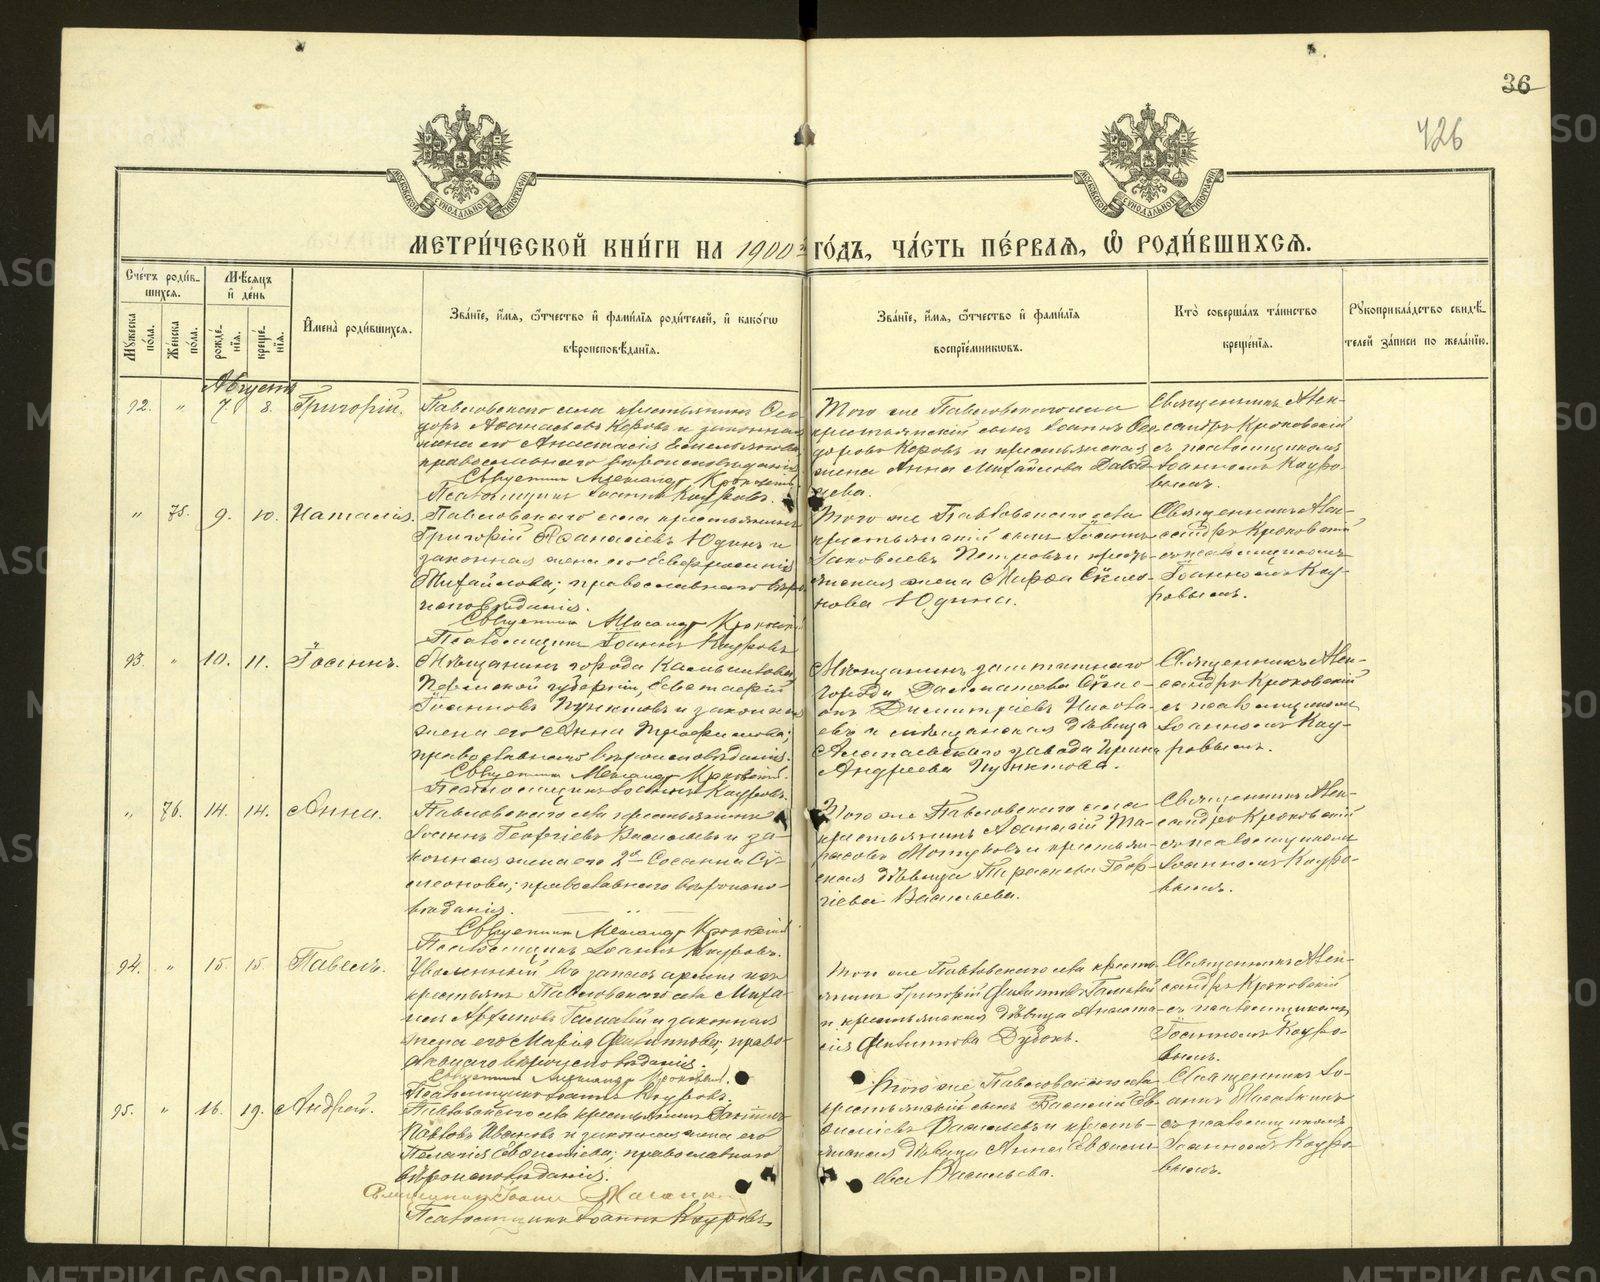 36
426
МОСКОВСКОЙ СѴНОДАЛЬНОЙ ТИПОГРАФІИ
МОСКОВСКОЙ СѴНОДАЛЬНОЙ ТИПОГРАФІИ
МЕТРИ́ЧЕСКОЙ КНИ́ГИ НА 1900й ГО́ДЪ, ЧА́СТЬ ПЕ́РВАЯ, Ѽ РОДИ́ВШИХСЯ.
Сче́тъ роди́в-
шихся.
Мѣ́сяцъ
и҆ де́нь
Мꙋ́жеска по́ла.
Же́нска по́ла.
рожде́-нїѧ.
креще́-нїѧ.
И҆мена̀ роди́вшихся.
Зва́нїе, и҆́мя, ѻ҆́тчество и҆ фами́лїя роди́телей, и҆ како́гѡ
вѣроисповѣ́данїя.
Зва́нїе, и҆́мя, ѻ҆́тчество и҆ фами́лїя
воспрїе́мникѡвъ.
Кто̀ соверша́лъ та́инство
креще́нїя.
Рꙋкоприкла́дство свидѣ́-
телей за́писи по жела́нїю.
Августъ
92. " 7. 8. Григорій.
Павловскаго села крестьянинъ Ѳео-
доръ Аѳанасьевъ Коровъ и законная
жена его Анастасія Емельянова,
православнаго вѣроисповѣданія
Священникъ Александръ Крюковскій
Псаломщикъ Іоаннъ Кауровъ.
Того же Павловскаго села
крестьянскій сынъ Іоаннъ Ѳео-
доровъ Коровъ и крестьянская
жена Анна Михайлова Давид-
Священникъ Алек-
сандръ Крюковскій
съ псаломщикомъ
Іоанномъ Кауро-
вымъ.
" 75. 9. 10. Наталія.
Павловскаго села крестьянинъ
Григорій Аѳанасіевъ Юдинъ и
законная жена его Евфросинія
Михайлова; православнаго вѣро-
исповѣданія.
Священникъ Александръ Крюковскій
Псаломщикъ Іоаннъ Кауровъ
Того же Павловскаго села
крестьянскій сынъ Іоаннъ
Іаковлевъ Петровъ и кресть-
янская жена Марѳа
Юдина.
Священникъ Алек-
сандръ Крюковскій
съ псаломщикомъ
Іоанномъ Кау-
ровымъ.
93. " 10. 11. Іоаннъ.
Мѣщанинъ города Камышлова
Пермской губерніи, Евстафій
Іоанновъ Пунктовъ и законная
жена его Анна Трофимова;
православнаго вѣроисповѣданія.
Священникъ Александръ Крюковскій.
Псаломщикъ Іоаннъ Кауровъ.
Мѣщанинъ заштатнаго
города Далматова Симе-
онъ Димитріевъ
и мѣщанская дѣвица
Алапаевскаго завода Ирина
Андреева Пунктова.
Священникъ Алек-
сандръ Крюковскій
съ псаломщикомъ
Іоанномъ Кау-
ровымъ.
" 76. 14. 14. Анна.
Павловскаго села крестьянинъ
Іоаннъ Георгіевъ Васильевъ и за-
конная жена его 2я Сосанна Си-
меонова; православнаго вѣроиспо-
вѣданія.
Священникъ Александръ Крюковскій
Псаломщикъ Іоаннъ Кауровъ.
Того же Павловскаго села
крестьянинъ Аѳанасій Та-
расовъ и крестьян-
ская дѣвица Параскева Геор-
гіева Васильева.
Священникъ Алек-
сандръ Крюковскій
съ псаломщикомъ
Іоанномъ Кауро-
вымъ.
94. " 15. 15. Павелъ.
Уволенный въ запасъ арміи изъ
крестьянъ Павловскаго села Миха-
илъ и законная
жена его Марія Филиппова; право-
славнаго вѣроисповѣданія.
Священникъ Александръ Крюковскій.
Псаломщикъ Іоаннъ Кауровъ.
Того же Павловскаго села кресть-
янинъ Григорій Филипповъ
и крестьянская дѣвица Анаста-
сія Филиппова
Священникъ Алек-
сандръ Крюковскій
съ псаломщикомъ
Іоанномъ Кауро-
вымъ.
95. " 16. 19. Андрей.
Павловскаго села крестьянинъ
Павловъ Ивановъ и законная жена его
Пелагія Евѳиміева; православнаго
вѣроисповѣданія.
Священникъ Іоаннъ
Псаломщикъ Іоаннъ Кауровъ.
Того же Павловскаго села
крестьянскій сынъ Василій Ев-
ѳиміевъ Васильевъ и кресть-
янская дѣвица Анна Евѳимі-
ева Васильева.
Священникъ Іо-
аннъ
съ псаломщикомъ
Іоанномъ Кауро-
вымъ.
METRIKI.GASO-URAL.RU